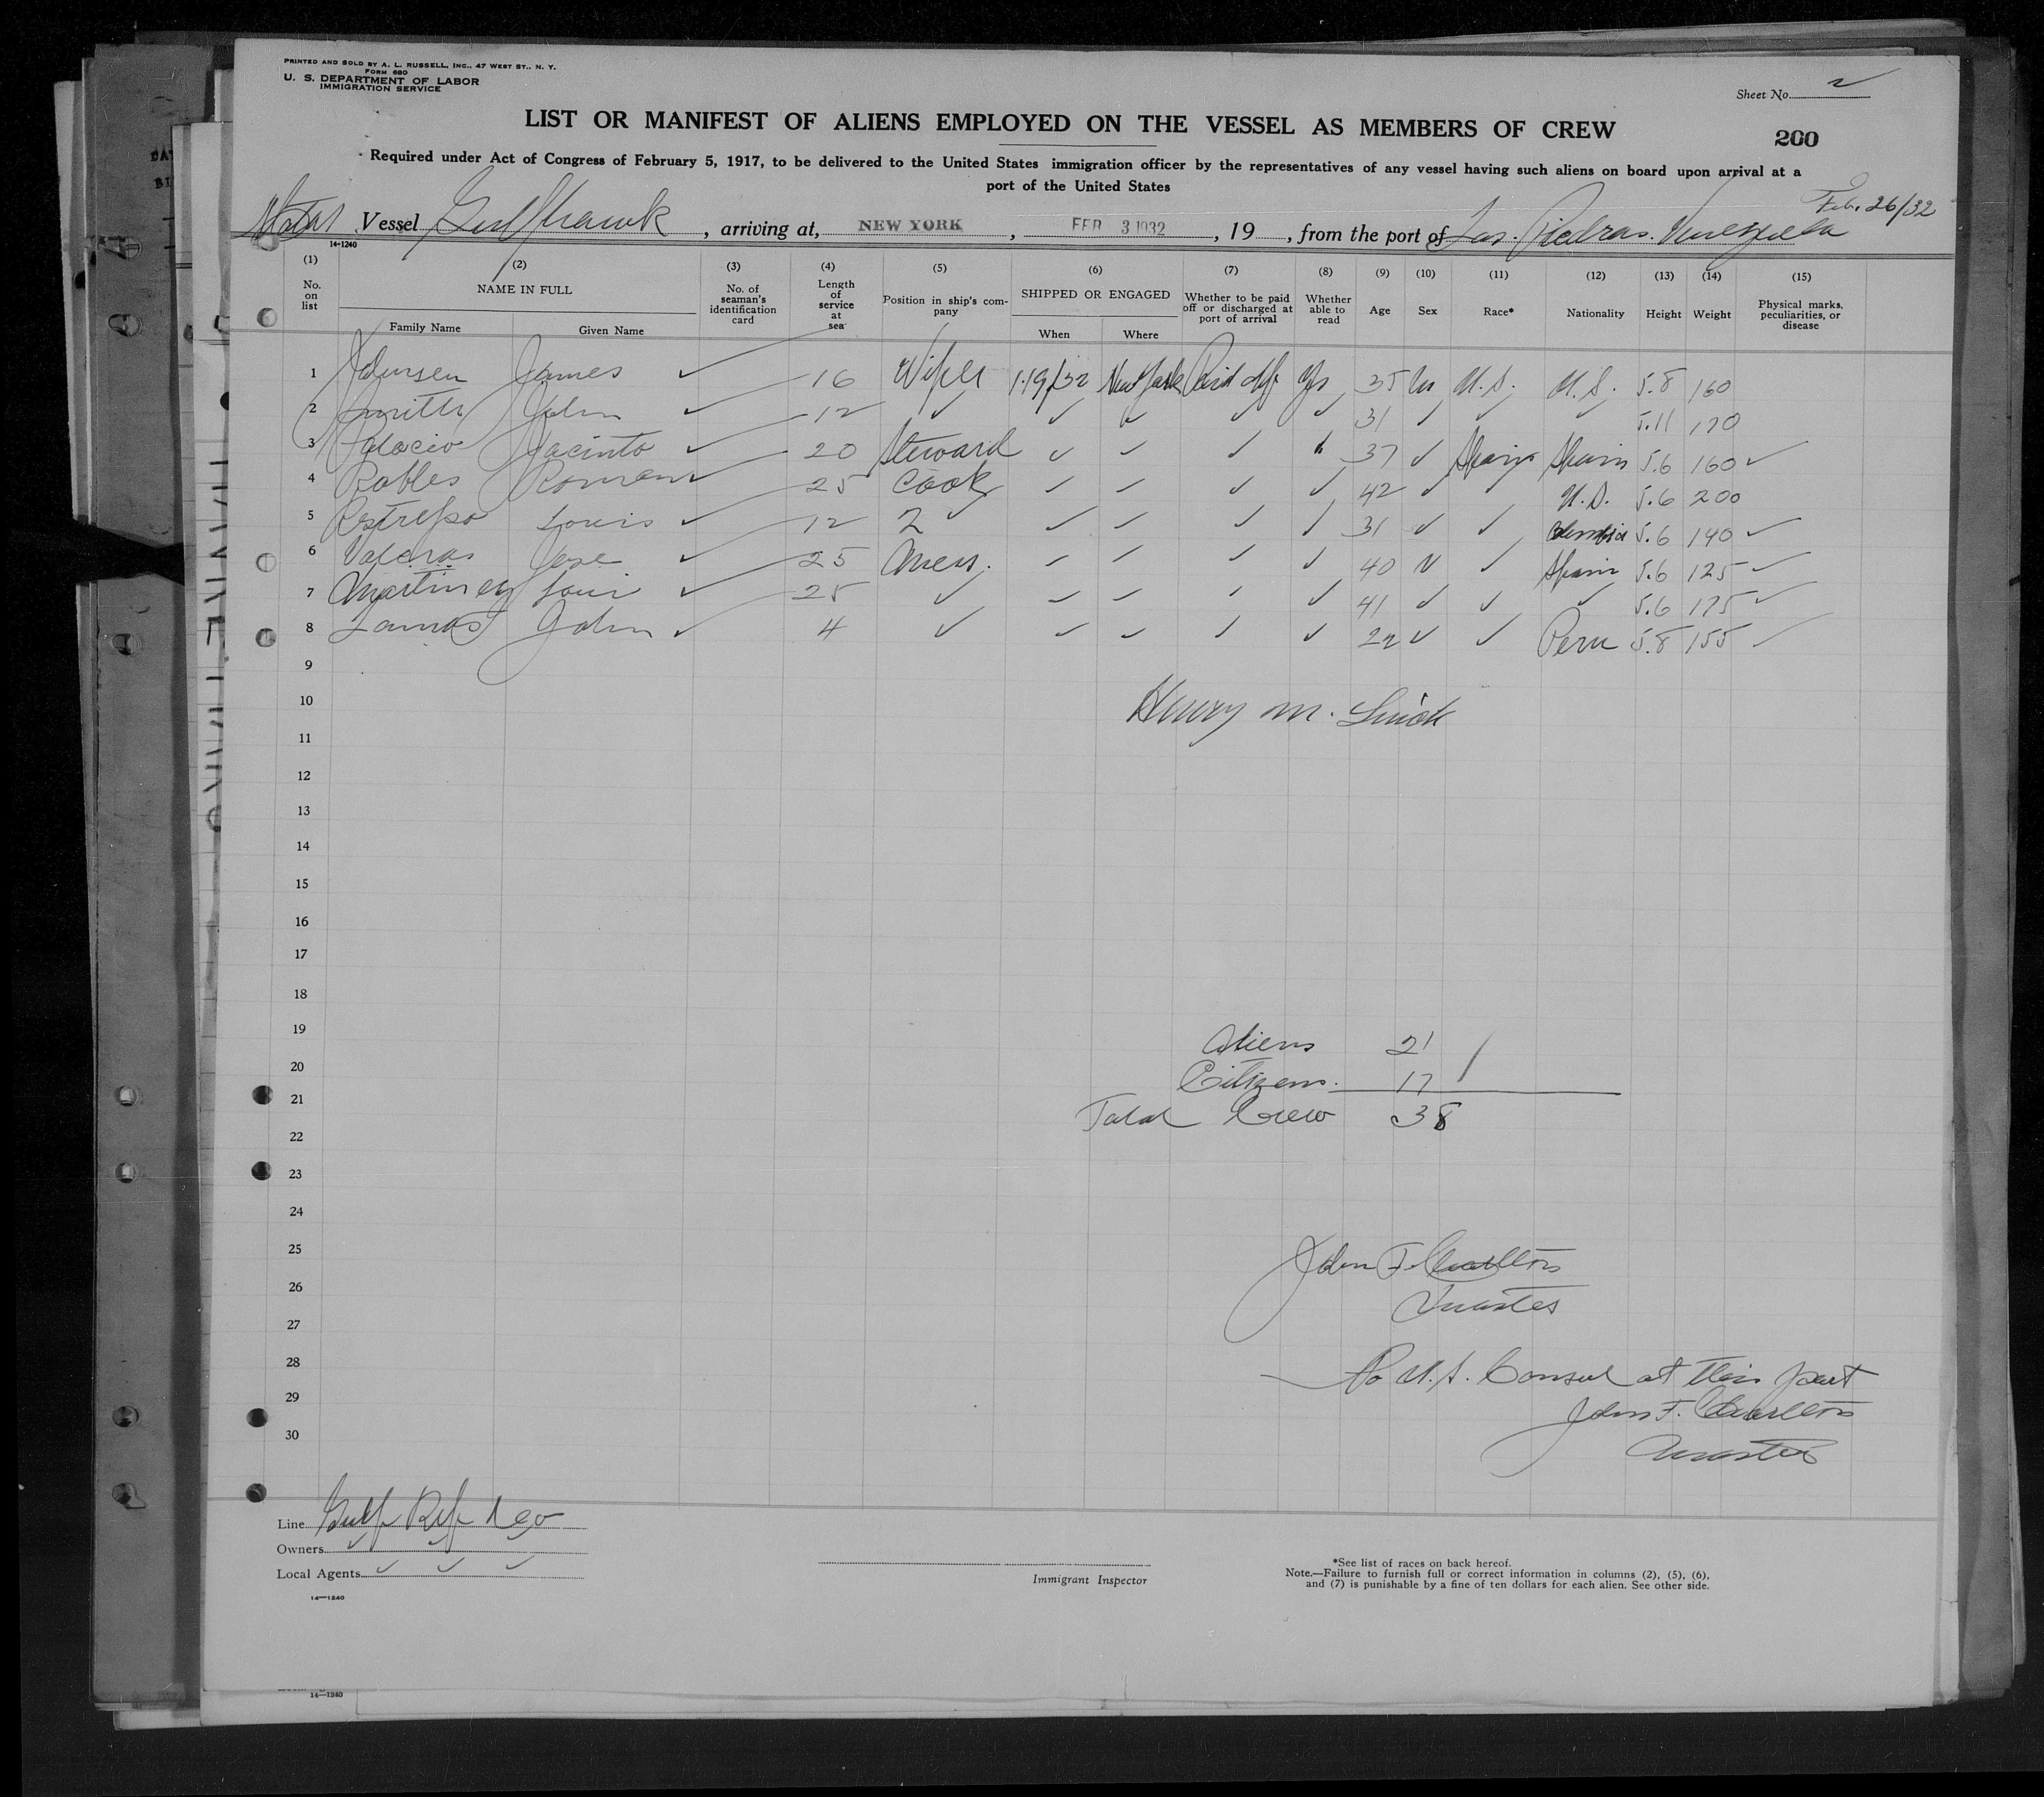 PRINTED AND SOLD BY A. L. RUSSELL, INC., 47 WEST ST., N. Y.
FORM 680
U. S. DEPARTMENT OF LABOR
IMMIGRATION SERVICE
Sheet No. 2
LIST OR MANIFEST OF ALIENS EMPLOYED ON THE VESSEL AS MEMBERS OF CREW
200
Required under Act of Congress of February 5, 1917, to be delivered to the United States immigration officer by the representatives of any vessel having such aliens on board upon arrival at a
port of the United States
Feb. 26/32
Vessel Gulfhawk, arriving at, NEW YORK, FEB 3 1932, 19, from the port of Las Piedras. Venezuela
14-1240
(1) (2) (3) (4) (5) (6) (7) (8) (9) (10) (11) (12) (13) (14) (15)
No. on list NAME IN FULL No. of seaman's identification card Length of service at sea Position in ship's company SHIPPED OR ENGAGED Whether to be paid off or discharged at port of arrival Whether able to read Age Sex Race* Nationality Height Weight Physical marks, peculiarities, or disease
Family Name Given Name When Where
1 Johnsen James ✓ 16 Wiper 1.19/32 New York Paid off Ys 35 m U.S. U.S. 5.8 160
2 Smith John ✓ 12 ✓ ✓ ✓ ✓ ✓ 31 ✓ ✓ ✓ 5.11 170
3 Palacio Jacinto ✓ 20 Steward ✓ ✓ ✓ ✓ 37 ✓ Spain Spain 5.6 160 ✓
4 Robles Roman ✓ 25 Cook ✓ ✓ ✓ ✓ 42 ✓ ✓ U.S. 5.6 200
5 Restrepo Louis ✓ 12 2 ✓ ✓ ✓ ✓ ✓ 31 ✓ ✓ Colombia 5.6 140 ✓
6 Valeras Jose ✓ 25 Mess. ✓ ✓ ✓ ✓ 40 ✓ ✓ Spain 5.6 125 ✓
7 Martinez Loui ✓ 25 ✓ ✓ ✓ ✓ ✓ 41 ✓ ✓ ✓ 5.6 175 ✓
8 Lamas John ✓ 4 ✓ ✓ ✓ ✓ ✓ 22 ✓ ✓ Peru 5.8 155 ✓
9
10 Henry M.
11
12
13
14
15
16
17
18
19 Aliens 21
20 Citizens. 17
21 Total Crew 38
22
23
24
25 John F. Charlton
26 Master
27
28 No U.S. Consul at this port
29 John F. Charlton
30 Master
Line Gulf Ref Co
Owners ✓ ✓
Local Agents ✓ ✓ ✓
Immigrant Inspector
*See list of races on back hereof.
Note.—Failure to furnish full or correct information in columns (2), (5), (6),
and (7) is punishable by a fine of ten dollars for each alien. See other side.
14—1240
14—1240